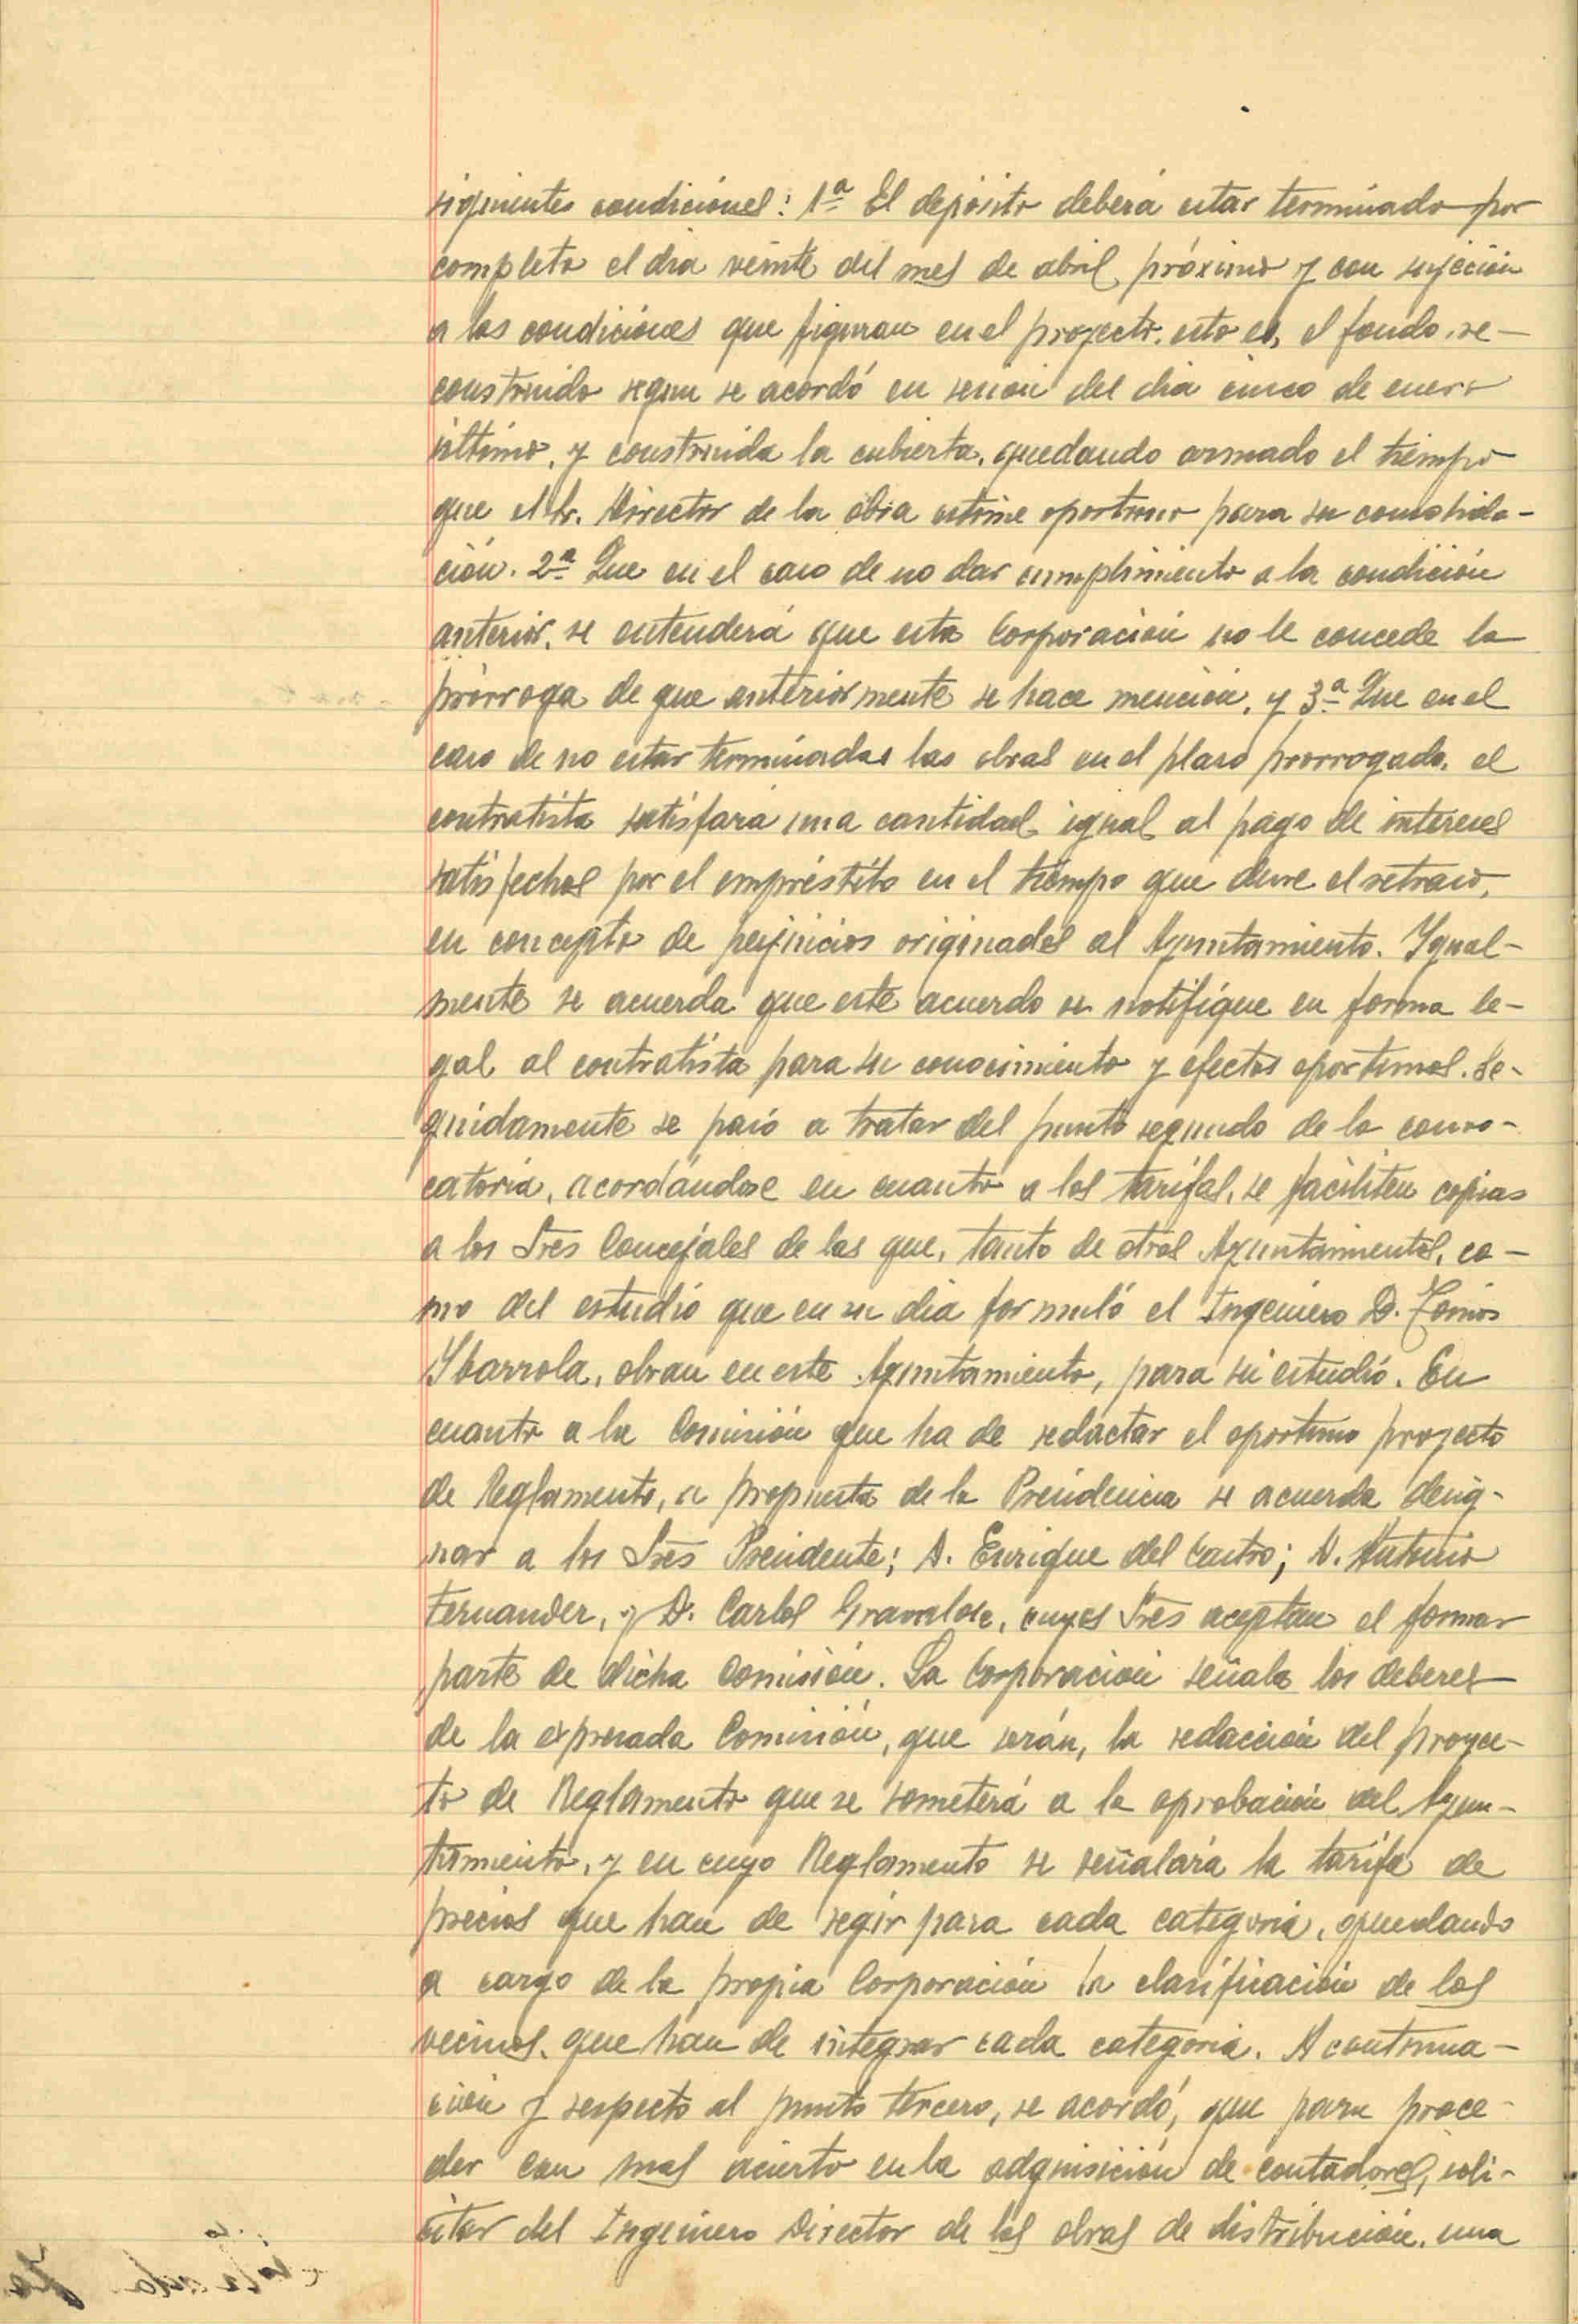 siguientes condiciones: 1ª El depósito deberá estar terminado por
completo el dia veinte del mes de abril próximo y con sujeción
a las condiciones que figuran en el proyecto, esto es, el fondo, re-
construido segun se acordó en sesion del dia cinco de enero
último, y construida la cubierta, quedando armado el tiempo
que el Sr. Director de la obra estime oportuno para su consolida-
ción. 2ª Que en el caso de no dar cumplimiento a la condición
anterior, se entenderá que esta Corporación no le concede la
prórroga de que anteriormente se hace mención, y 3ª Que en el
caso de no estar terminadas las obras en el plaso prorrogado, el
contratista satisfará una cantidad igual al pago de intereses
satisfechos por el empréstito en el tiempo que dure el retraso,
en concepto de perjuicios originados al Ayuntamiento. Ygual-
mente se acuerda que este acuerdo se notifique en forma le-
gal al contratista para su conocimiento y efectos oportunos. Se-
guidamente se pasó a tratar del punto segundo de la convo-
catoria, acordándose en cuanto a las tarifas, se faciliten copias
a los Sres Concejales de las que, tanto de otros Ayuntamientos, co-
mo del estudio que en su dia formuló el Ingeniero D. Tomás
Ybarrola, obran en este Ayuntamiento, para su estudio. En
cuanto a la Comisión que ha de redactar el oportuno proyecto
de Reglamento, a propuesta de la Presidencia se acuerda desig-
nar a los Sres Presidente; D. Enrique del Castro; D. Antonio
Fernander, y D. Carlos Gravalose, cuyos Sres aceptan el formar
parte de dicha Comisión. La Corporación señala los deberes
de la expresada Comisión, que serán, la redacción del proyec-
to de Reglamento que se someterá a la aprobación del Ayun-
tamiento, y en cuyo Reglamento se señalará la tarifa de
precios que han de regir para cada categoria, quedando
a cargo de la propia Corporación la clasificación de los
vecinos que han de integrar cada categoria. A continua-
ción y respecto al punto tercero, se acordó, que para proce-
der con mas acierto en la adquisición de contadores, soli-
citar del Ingeniero Director de las obras de distribución, una